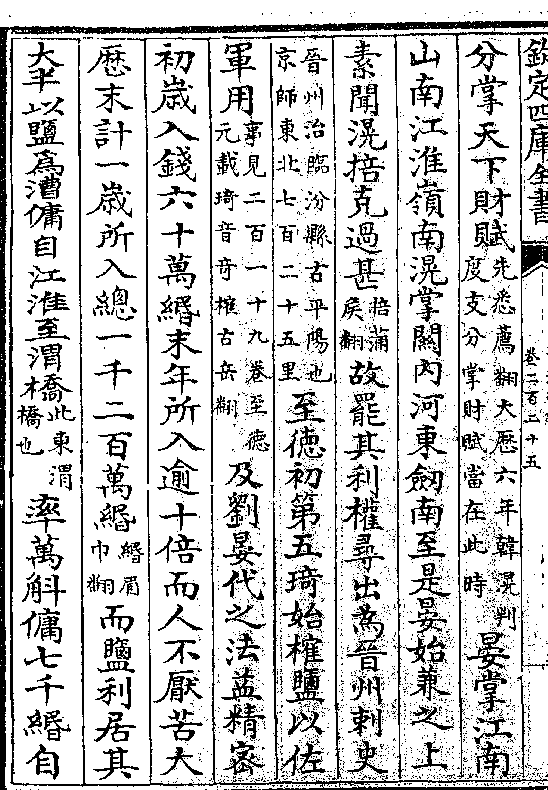 欽定四庫全書 卷二百二十五
分掌天下財賦先悉薦翻大厯六年韓滉判度支分掌財賦當在此時晏掌江南
山南江淮嶺南滉掌關內河東劒南至是晏始兼之上
素聞滉掊克過甚掊蒲侯翻故罷其利權尋出為晉州刺史
晉州治臨汾縣古平陽也京師東北七百二十五里至徳初第五琦始榷鹽以佐
軍用事見二百一十九卷至徳元載琦音竒榷古岳翻及劉晏代之法益精密
初歲入錢六十萬緡末年所入逾十倍而人不厭苦大
厯末計一歲所入總一千二百萬緡緡眉巾翻而鹽利居其
大半以鹽爲漕傭自江淮至渭橋此東渭橋也率萬斛傭七千緡自